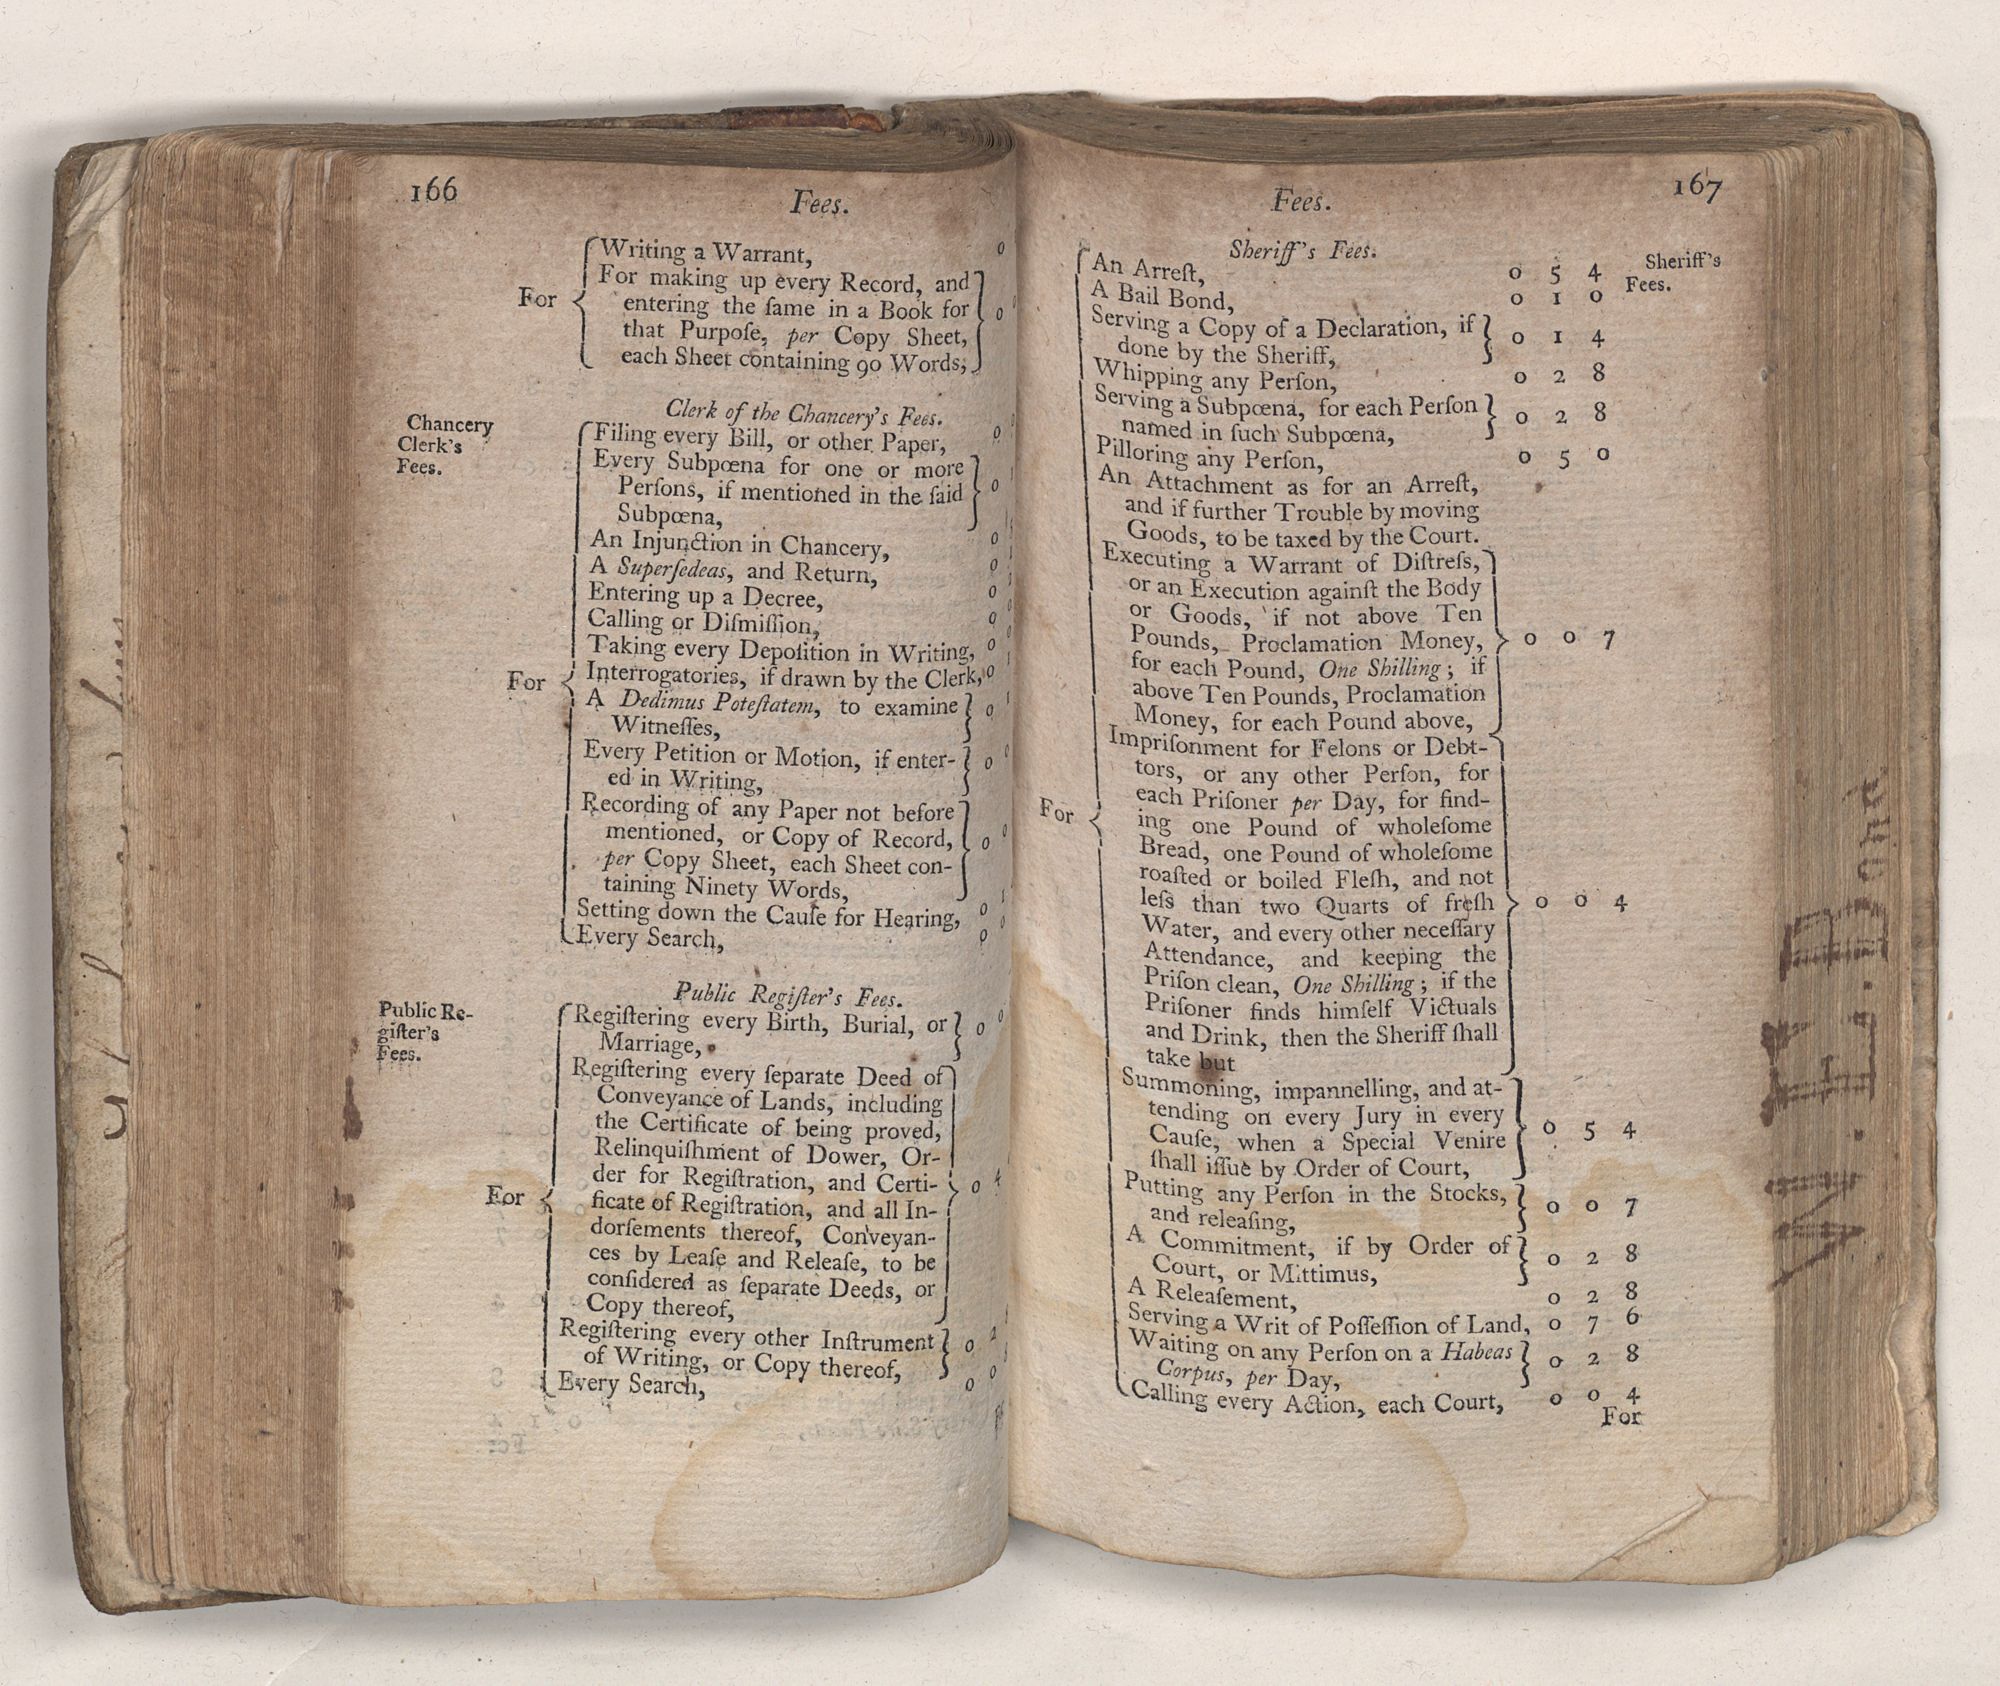 166
Fees.
Writing a Warrant, 0
For making up every Record, and
For
entering the ſame in a Book for
that Purpoſe, per Copy Sheet, 0
each Sheet containing 90 Words,
Clerk of the Chancery's Fees.
Chancery
Clerk's
Fees.
Filing every Bill, or other Paper, 0
Every Subpœna for one or more
Perſons, if mentioned in the ſaid 0
Subpœna,
An Injunction in Chancery, 0
A Superſedeas, and Return, 0
Entering up a Decree, 0
Calling or Diſmiſſion, 0
Taking every Depoſition in Writing, 0
For
Interrogatories, if drawn by the Clerk, 0
A Dedimus Poteſtatem, to examine 0
Witneſſes,
Every Petition or Motion, if enter- 0
ed in Writing,
Recording of any Paper not before
mentioned, or Copy of Record, 0
per Copy Sheet, each Sheet con-
taining Ninety Words,
Setting down the Cauſe for Hearing, 0
Every Search, 0
Public Regiſter's Fees.
Public Re-
giſter's
Fees.
Regiſtering every Birth, Burial, or 0
Marriage,
Regiſtering every ſeparate Deed of
Conveyance of Lands, including
the Certificate of being proved,
Relinquiſhment of Dower, Or-
der for Regiſtration, and Certi- 0 4
For
ficate of Regiſtration, and all In-
dorſements thereof, Conveyan-
ces by Leaſe and Releaſe, to be
conſidered as ſeparate Deeds, or
Copy thereof,
Regiſtering every other Inſtrument 0 2
of Writing, or Copy thereof,
Every Search, 0 0
167
Fees.
Sheriff's Fees.
Sheriff's
Fees.
An Arreſt, 0 5 4
A Bail Bond, 0 1 0
Serving a Copy of a Declaration, if 0 1 4
done by the Sheriff,
Whipping any Perſon, 0 2 8
Serving a Subpœna, for each Perſon 0 2 8
named in ſuch Subpœna,
Pilloring any Perſon, 0 5 0
An Attachment as for an Arreſt,
and if further Trouble by moving
Goods, to be taxed by the Court.
Executing a Warrant of Diſtreſs,
or an Execution againſt the Body
or Goods, if not above Ten
Pounds, Proclamation Money, 0 0 7
for each Pound, One Shilling; if
above Ten Pounds, Proclamation
Money, for each Pound above,
Impriſonment for Felons or Debt-
tors, or any other Perſon, for
each Priſoner per Day, for find-
For
ing one Pound of wholeſome
Bread, one Pound of wholeſome
roaſted or boiled Fleſh, and not
leſs than two Quarts of freſh 0 0 4
Water, and every other neceſſary
Attendance, and keeping the
Priſon clean, One Shilling; if the
Priſoner finds himſelf Victuals
and Drink, then the Sheriff ſhall
take but
Summoning, impannelling, and at-
tending on every Jury in every 0 5 4
Cauſe, when a Special Venire
ſhall iſſue by Order of Court,
Putting any Perſon in the Stocks, 0 0 7
and releaſing,
A Commitment, if by Order of 0 2 8
Court, or Mittimus,
A Releaſement, 0 2 8
Serving a Writ of Poſſeſſion of Land, 0 7 6
Waiting on any Perſon on a Habeas 0 2 8
Corpus, per Day,
Calling every Action, each Court, 0 0 4
For